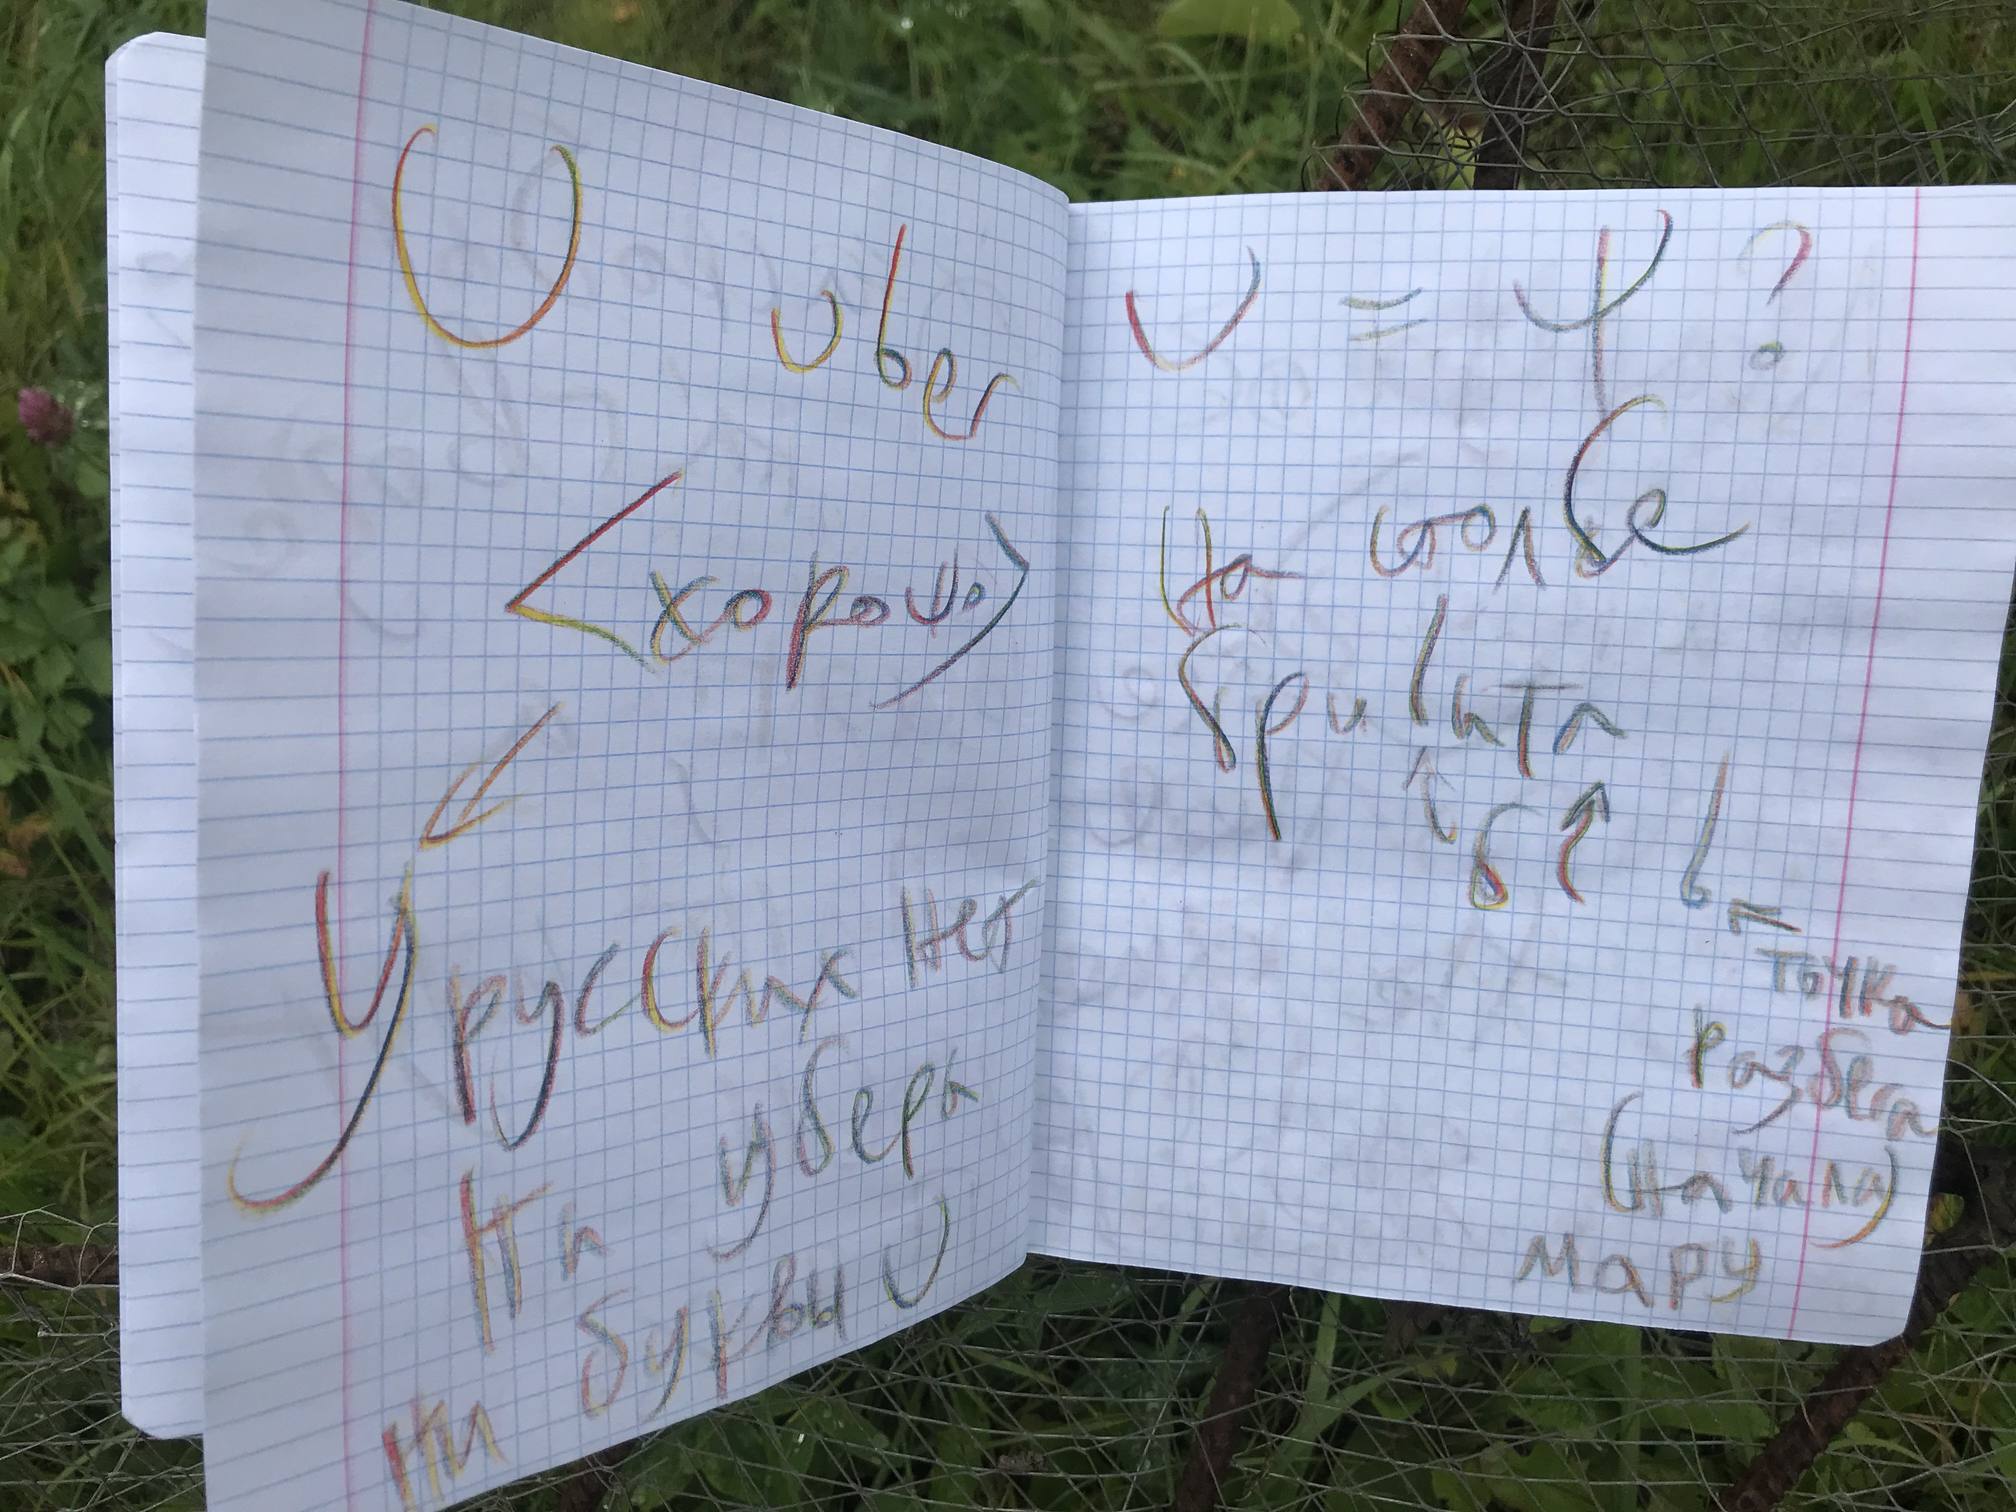 U uber
<хорошо)
У русских нет
ни убера
ни буквы U
U = Ψ ?
на столбе
гриbата
б
b ← точка
разбега
(начала)
мару